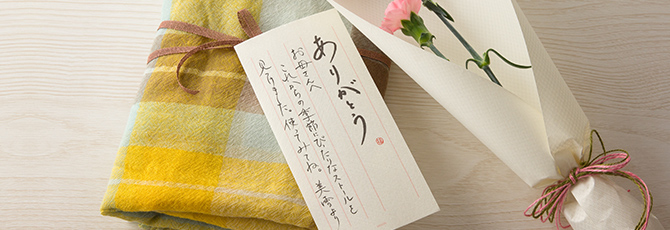 ありがとう
お母さんへ
これからの季節にぴったりなストールを
見つけました。使ってみてね。美雪より